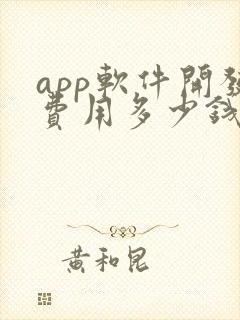 app軟件開發
費用多少錢
黃和昆